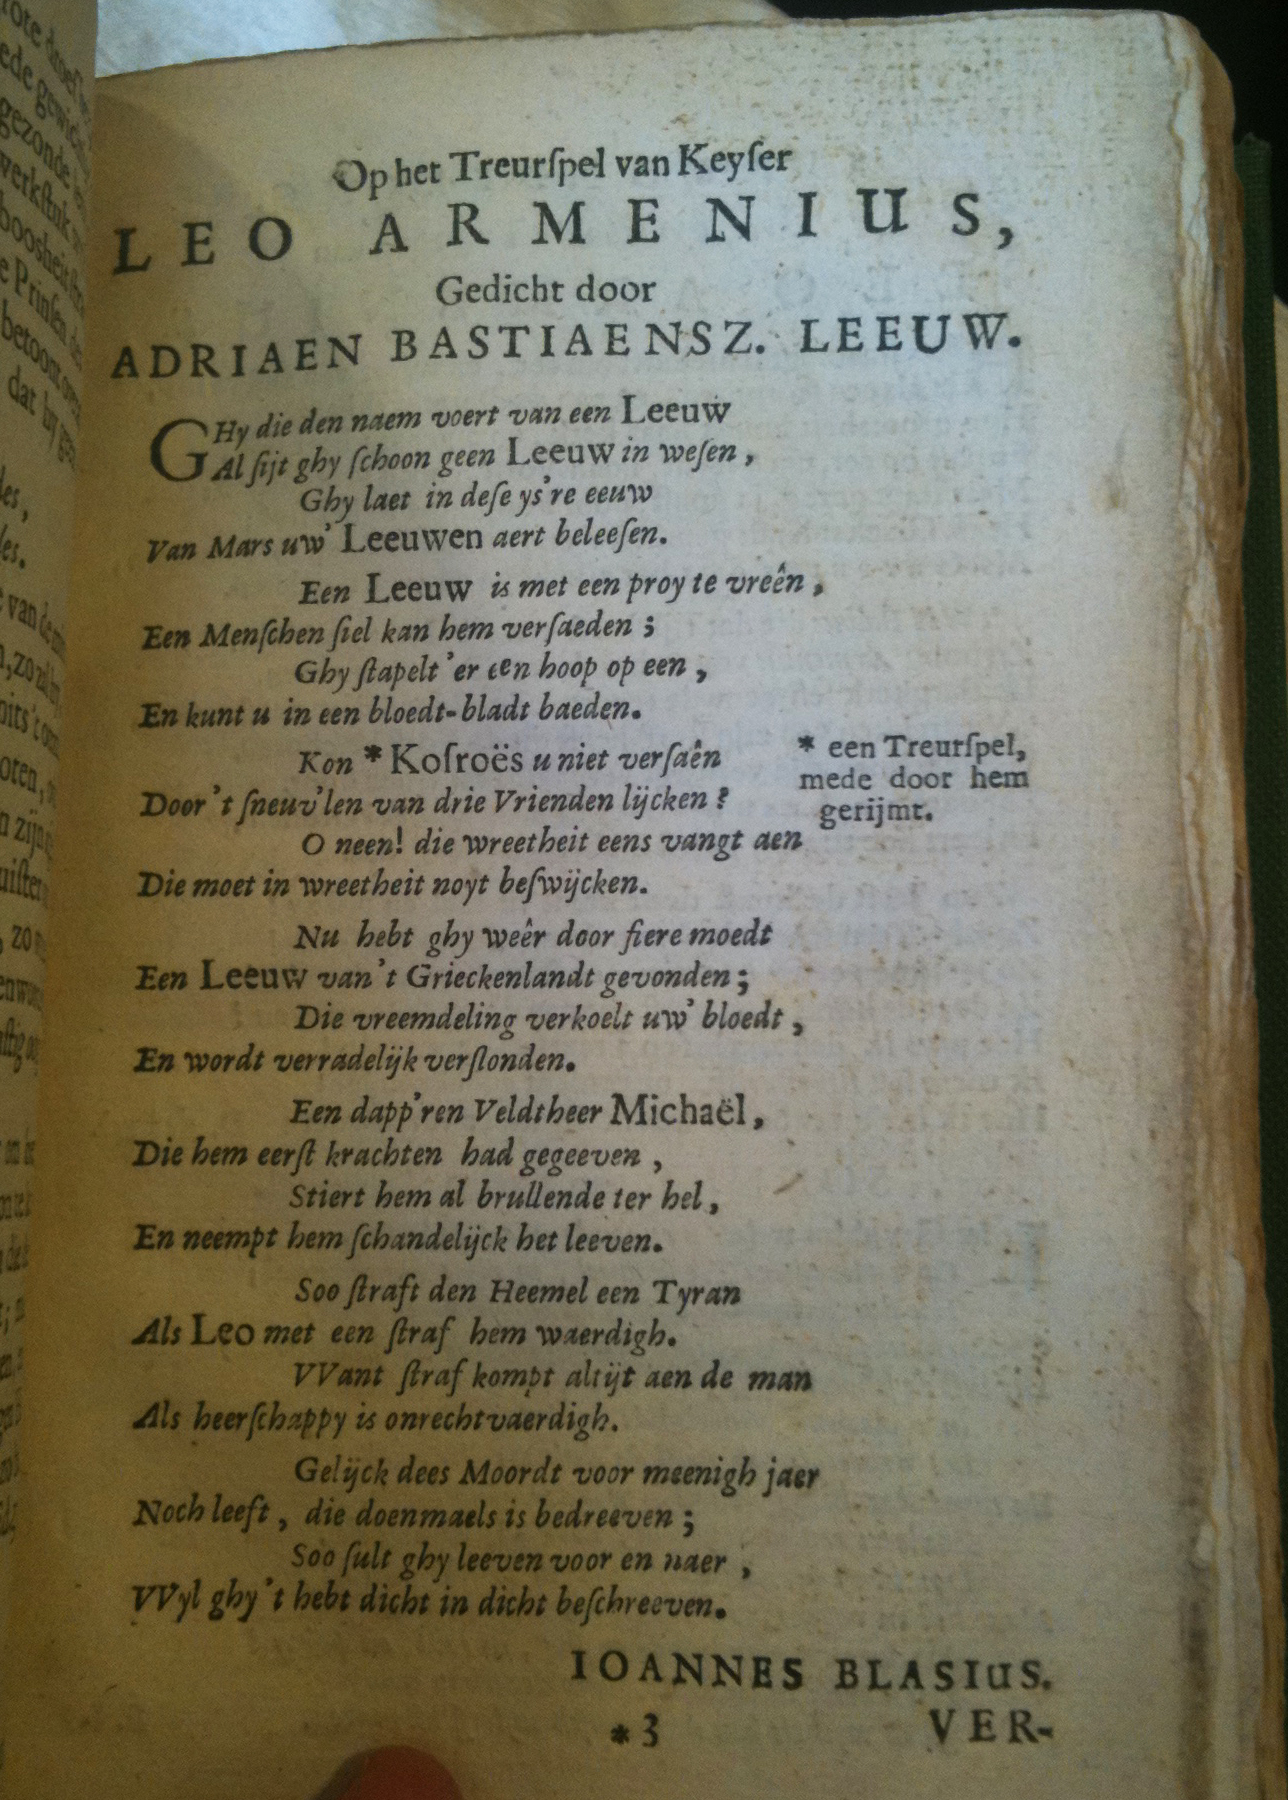 Op het Treurſpel van Keyſer
LEO ARMENIUS,
Gedicht door
ADRIAEN BASTIAENSZ. LEEUW.
GHy die den naem voert van een Leeuw
Al ſijt ghy ſchoon geen Leeuw in weſen,
Ghy laet in deſe ys're eeuw
Van Mars uw' Leeuwen aert beleeſen.
Een Leeuw is met een proy te vreên,
Een Menſchen ſiel kan hem verſaeden;
Ghy ſtapelt 'er een hoop op een,
En kunt u in een bloedt-bladt baeden.
Kon * Koſroës u niet verſaên
* een Treurſpel,
mede door hem
gerijmt.
Door 't ſneuv'len van drie Vrienden lijcken?
O neen! die wreetheit eens vangt aen
Die moet in wreetheit noyt beſwijcken.
Nu hebt ghy weêr door fiere moedt
Een Leeuw van 't Grieckenlandt gevonden;
Die vreemdeling verkoelt uw' bloedt,
En wordt verradelijk verſlonden.
Een dapp'ren Veldtheer Michaël,
Die hem eerſt krachten had gegeeven,
Stiert hem al brullende ter hel,
En neempt hem ſchandelijck het leeven.
Soo ſtraft den Heemel een Tyran
Als Leo met een ſtraf hem waerdigh.
VVant ſtraf kompt altijt aen de man
Als heerſchappy is onrechtvaerdigh.
Gelijck dees Moordt voor meenigh jaer
Noch leeft, die doenmaels is bedreeven;
Soo ſult ghy leeven voor en naer,
VVyl ghy 't hebt dicht in dicht beſchreeven.
IOANNES BLASIUS.
* 3
VER-